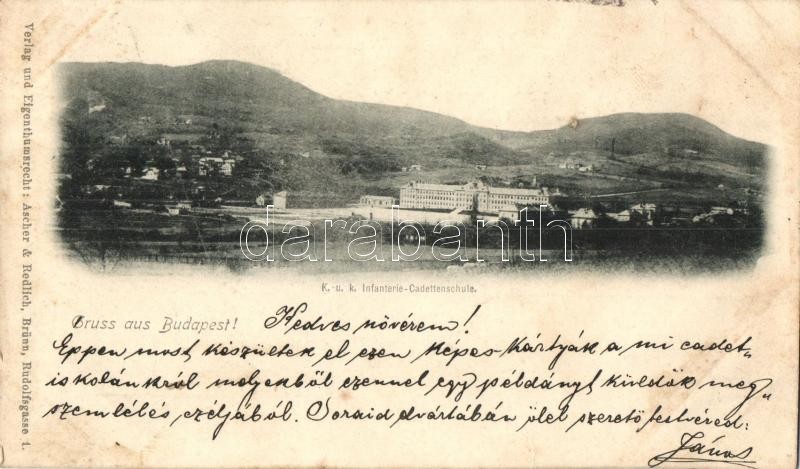 Verlag und Eigenthumsrecht: Ascher & Redlich, Brünn, Rudolfsgasse 1.
darabanth
K. u. k. Infanterie-Cadettenschule.
Gruss aus Budapest! Kedves növérem!
Éppen most készültek el ezen képes-kártyák a mi cadet„
iskolánkról melyekből ezennel egy példányt küldök meg„
szemlélés czéljából. Soraid dvártában ölel szerető testvéred:
János